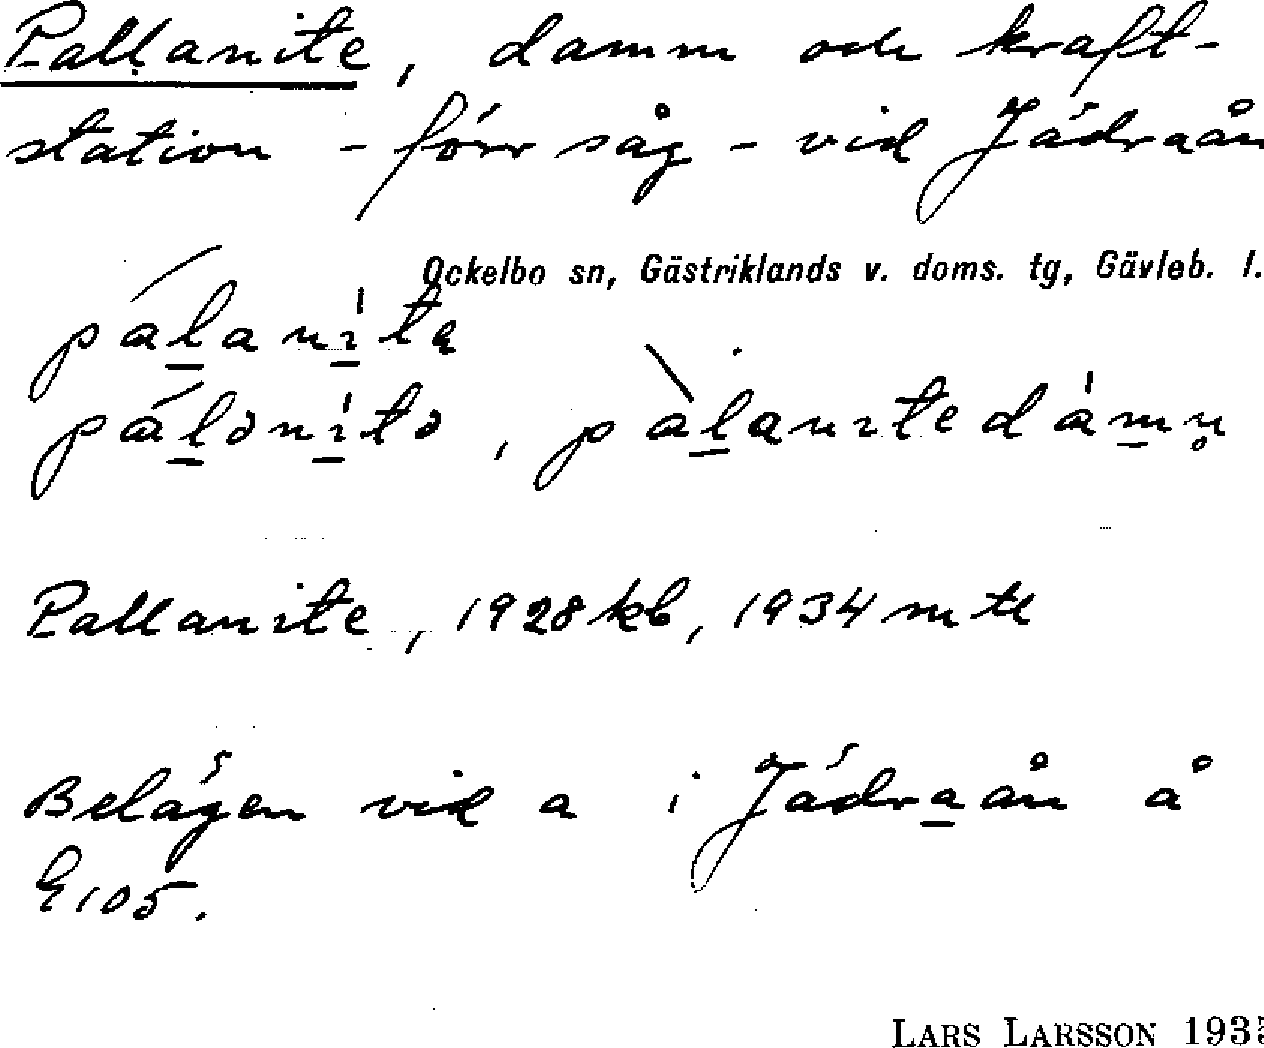 Pallanite, damm och kraft-
station - förr såg - vid Jädraån
Ockelbo sn, Gästriklands v. doms. tg, Gävleb. l.
pálaníte
pálənítə, pàlanıtedámn̥
Pallanite, 1928 kb, 1934 mtl
Belägen vid a i Jädraån å
E105.
LARS LARSSON 193